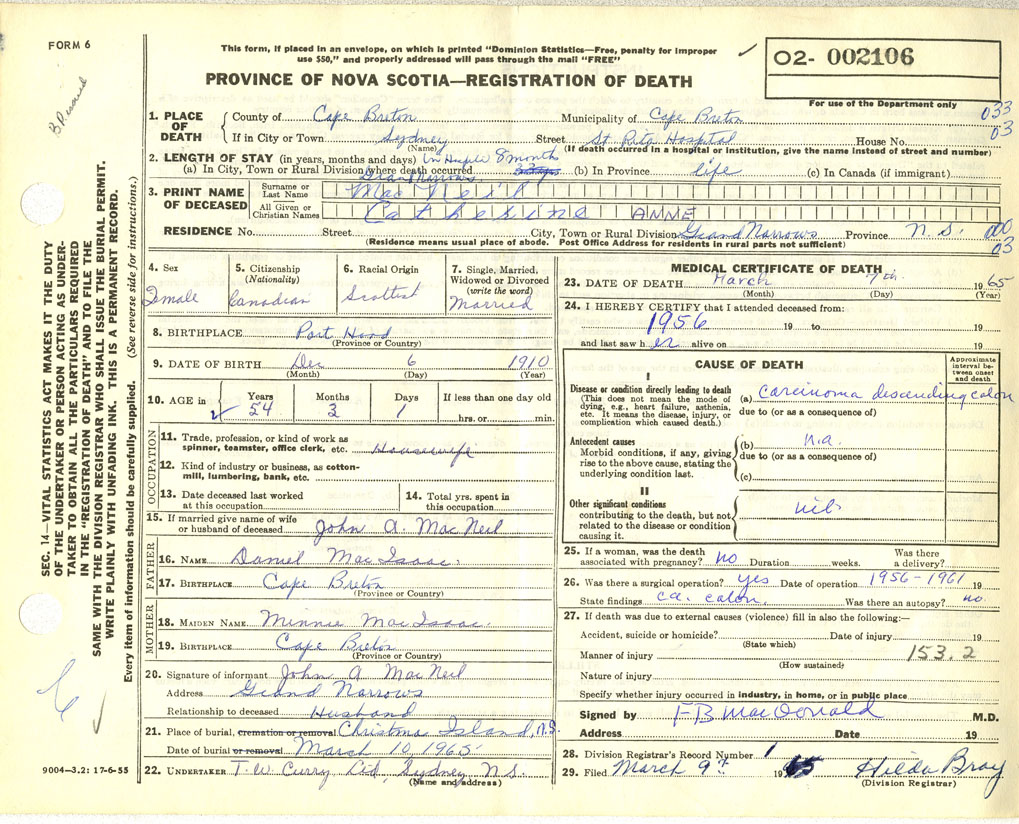 FORM 6
B.P.
This form, if placed in an envelope, on which is printed "Dominion Statistics—Free, penalty for improper
use $50," and properly addressed will pass through the mail "FREE"
PROVINCE OF NOVA SCOTIA—REGISTRATION OF DEATH
02- 002106
For use of the Department only
033
03
1. PLACE OF DEATH
County of Cape Breton Municipality of Cape Breton
If in City or Town Sydney Street St Rita Hospital House No.
(Name) (If death occurred in a hospital or institution, give the name instead of street and number)
2. LENGTH OF STAY (in years, months and days) In Hosple 8 month
(a) In City, Town or Rural Division where death occurred (b) In Province life (c) In Canada (if immigrant)
Grand Narrows
3. PRINT NAME OF DECEASED
Surname or Last Name Mac Neil
All Given or Christian Names Catherine ANNE
RESIDENCE No. Street City, Town or Rural Division Grand Narrows Province N.S. 000
03
(Residence means usual place of abode. Post Office Address for residents in rural parts not sufficient)
4. Sex Female
5. Citizenship (Nationality) Canadian
6. Racial Origin Scottish
7. Single, Married, Widowed or Divorced (write the word) Married
8. BIRTHPLACE Port Hood
(Province or Country)
9. DATE OF BIRTH Dec 6 1910
(Month) (Day) (Year)
10. AGE in Years 54 Months 3 Days 1 If less than one day old hrs. or min.
OCCUPATION
11. Trade, profession, or kind of work as spinner, teamster, office clerk, etc. Housewife
12. Kind of industry or business, as cotton-mill, lumbering, bank, etc.
13. Date deceased last worked at this occupation
14. Total yrs. spent in this occupation
15. If married give name of wife or husband of deceased John A. MacNeil
FATHER
16. NAME Daniel MacIsaac
17. BIRTHPLACE Cape Breton
(Province or Country)
MOTHER
18. MAIDEN NAME Minnie MacIsaac
19. BIRTHPLACE Cape Breton
(Province or Country)
20. Signature of informant John A MacNeil
Address Grand Narrows
Relationship to deceased Husband
21. Place of burial, cremation or removal Christmas Island, N.S.
Date of burial or removal March 10, 1965
22. UNDERTAKER T.W. Curry Ltd, Sydney N.S.
(Name and address)
MEDICAL CERTIFICATE OF DEATH
23. DATE OF DEATH March 7th 1965
(Month) (Day) (Year)
24. I HEREBY CERTIFY that I attended deceased from:
1956 19 to 19
and last saw her alive on 19
CAUSE OF DEATH
Approximate interval between onset and death
I
Disease or condition directly leading to death
(This does not mean the mode of dying, e.g., heart failure, asthenia, etc. It means the disease, injury, or complication which caused death.)
(a) Carcinoma descending colon
due to (or as a consequence of)
Antecedent causes
Morbid conditions, if any, giving rise to the above cause, stating the underlying condition last.
(b) n.a.
due to (or as a consequence of)
(c)
II
Other significant conditions
contributing to the death, but not related to the disease or condition causing it.
nil
25. If a woman, was the death associated with pregnancy? no Duration weeks. Was there a delivery?
26. Was there a surgical operation? yes Date of operation 1956-1961 19
State findings ca. colon. Was there an autopsy? no
27. If death was due to external causes (violence) fill in also the following:—
Accident, suicide or homicide? Date of injury 19
(State which)
Manner of injury 153.2
(How sustained)
Nature of injury
Specify whether injury occurred in industry, in home, or in public place
Signed by FB MacDonald M.D.
Address Date 19
28. Division Registrar's Record Number 1
29. Filed March 9th 1965 Hilda Bray
(Division Registrar)
SEC. 14—VITAL STATISTICS ACT MAKES IT THE DUTY
OF THE UNDERTAKER OR PERSON ACTING AS UNDER-
TAKER TO OBTAIN ALL THE PARTICULARS REQUIRED
IN THE "REGISTRATION OF DEATH" AND TO FILE THE
SAME WITH THE DIVISION REGISTRAR WHO SHALL ISSUE THE BURIAL PERMIT.
WRITE PLAINLY WITH UNFADING INK. THIS IS A PERMANENT RECORD.
Every item of information should be carefully supplied. (See reverse side for instructions.)
9004—3.2: 17-6-55